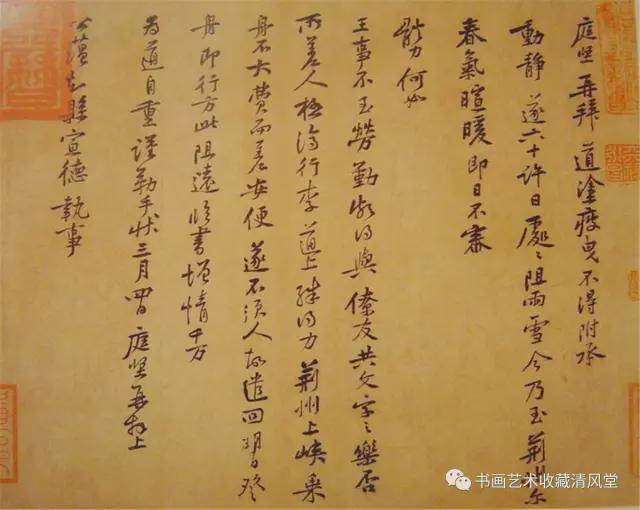 庭堅再拜 道塗疲曳 不得附承
動靜 遂六十許日 處〻阻雨雪 今乃至荊州尔
春氣暄暖 即日不審
體力何如
王事不至勞勤 頗得與僚友共文字之樂否
所差人極濟行李 道上殊得力 荊州上峽乘
舟不大費而差安便 遂不須人 故遣回 明日登
舟即行 方此阻遠 臨書增情 千万
為道自重 謹勒手狀 三月四日 庭堅再拜上
公蘊知縣宣德執事
书画艺术收藏清风堂